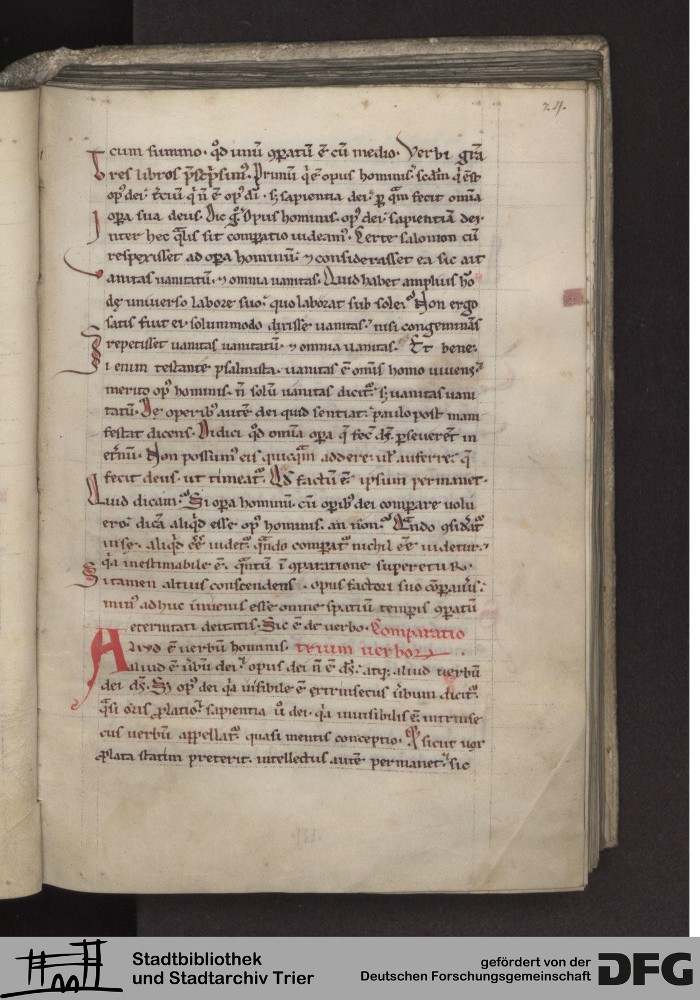 7.4.
cum summo· qd̄ unū ꝯparatū ē cū medio· Verbi gr̄a
Tres libros p̄scripsim᷒· Primū q̄ ē opus hominis· sc̄dm̄ q̄ est
op᷒ dei· t̄ciū q̄ n̄ ē op᷒ dī· sꝫ sapientia dei· ꝑ quā fecit omīa
oꝑa sua deus· Dic g̊ Opus hominis· op᷒ dei sapientiā dei·
Inter hec q̄lis sit comꝑatio uideam᷒· Certe salomon cū
respexisset ad oꝑa hominū· ⁊ considerasset ea sic ait
Vanitas uanitatū· ⁊ omnia uanitas· Quid habet amplius hō
de uniuerso labore suo· quo laborat sub sole· Non ergo
satis fuit ei solummodo dixisse uanitas· nisi congeminās
repetisset uanitas uanitatū· ⁊ omnia uanitas· Et bene·
Si enim testante psalmista· uanitas ē omīs homo uiuens·
merito op᷒ hominis· n̄ solū uanitas dicit᷑· sꝫ uanitas uani
tatū· De operib᷒ autē dei quid sentiat· paulo post mani
festat dicens· Didici qd̄ omīa oꝑa q̄ fec̄ ds̄ ꝑseuerēt in
et̄nū· Non possum᷒ eis quicquā addere· ul̄ auferre· q̄
fecit deus· ut timeat᷑· Qd̄ factū ē· ipsum permanet·
Quid dicam· Si oꝑa hominū· cū oꝑib᷒ dei compare uolu
ero· dicā aliqd̄ esse op᷒ hominis· an non· Quando ꝯsidat᷑
in se· aliqd̄ eē uidet᷑· quando comꝑat᷑ nichil eē uidetur·
q̄a inestimabile ē· quātū ī ꝯparatione superetur·
Si tamen altius conscendens· opus factori suo cōꝑauis·
min᷒ adhuc inuenis esse omne spatiū temꝑis ꝯparatū
eternitati deitatis· Sic ē de uerbo· Comparatio
Aliud ē uerbū hominis· trium uerborꝝ
Aliud ē ūbū dei· opus dei n̄ ē ds̄· atqꝫ aliud uerbū
dei ds̄· Sꝫ op᷒ dei q̄a uisibile ē extrinsecus ūbum dicit᷑·
q̄si oris ꝓlatio· sapientia ū dei· q̄a inuisibilis ē· intrinse
cus uerbū appellat᷑ quasi mentis conceptio· Et sicut uox
ꝓlata statim preterit· intellectus autē permanet· sic
Stadtbibliothek
und Stadtarchiv Trier
gefördert von der
Deutschen Forschungsgemeinschaft
DFG